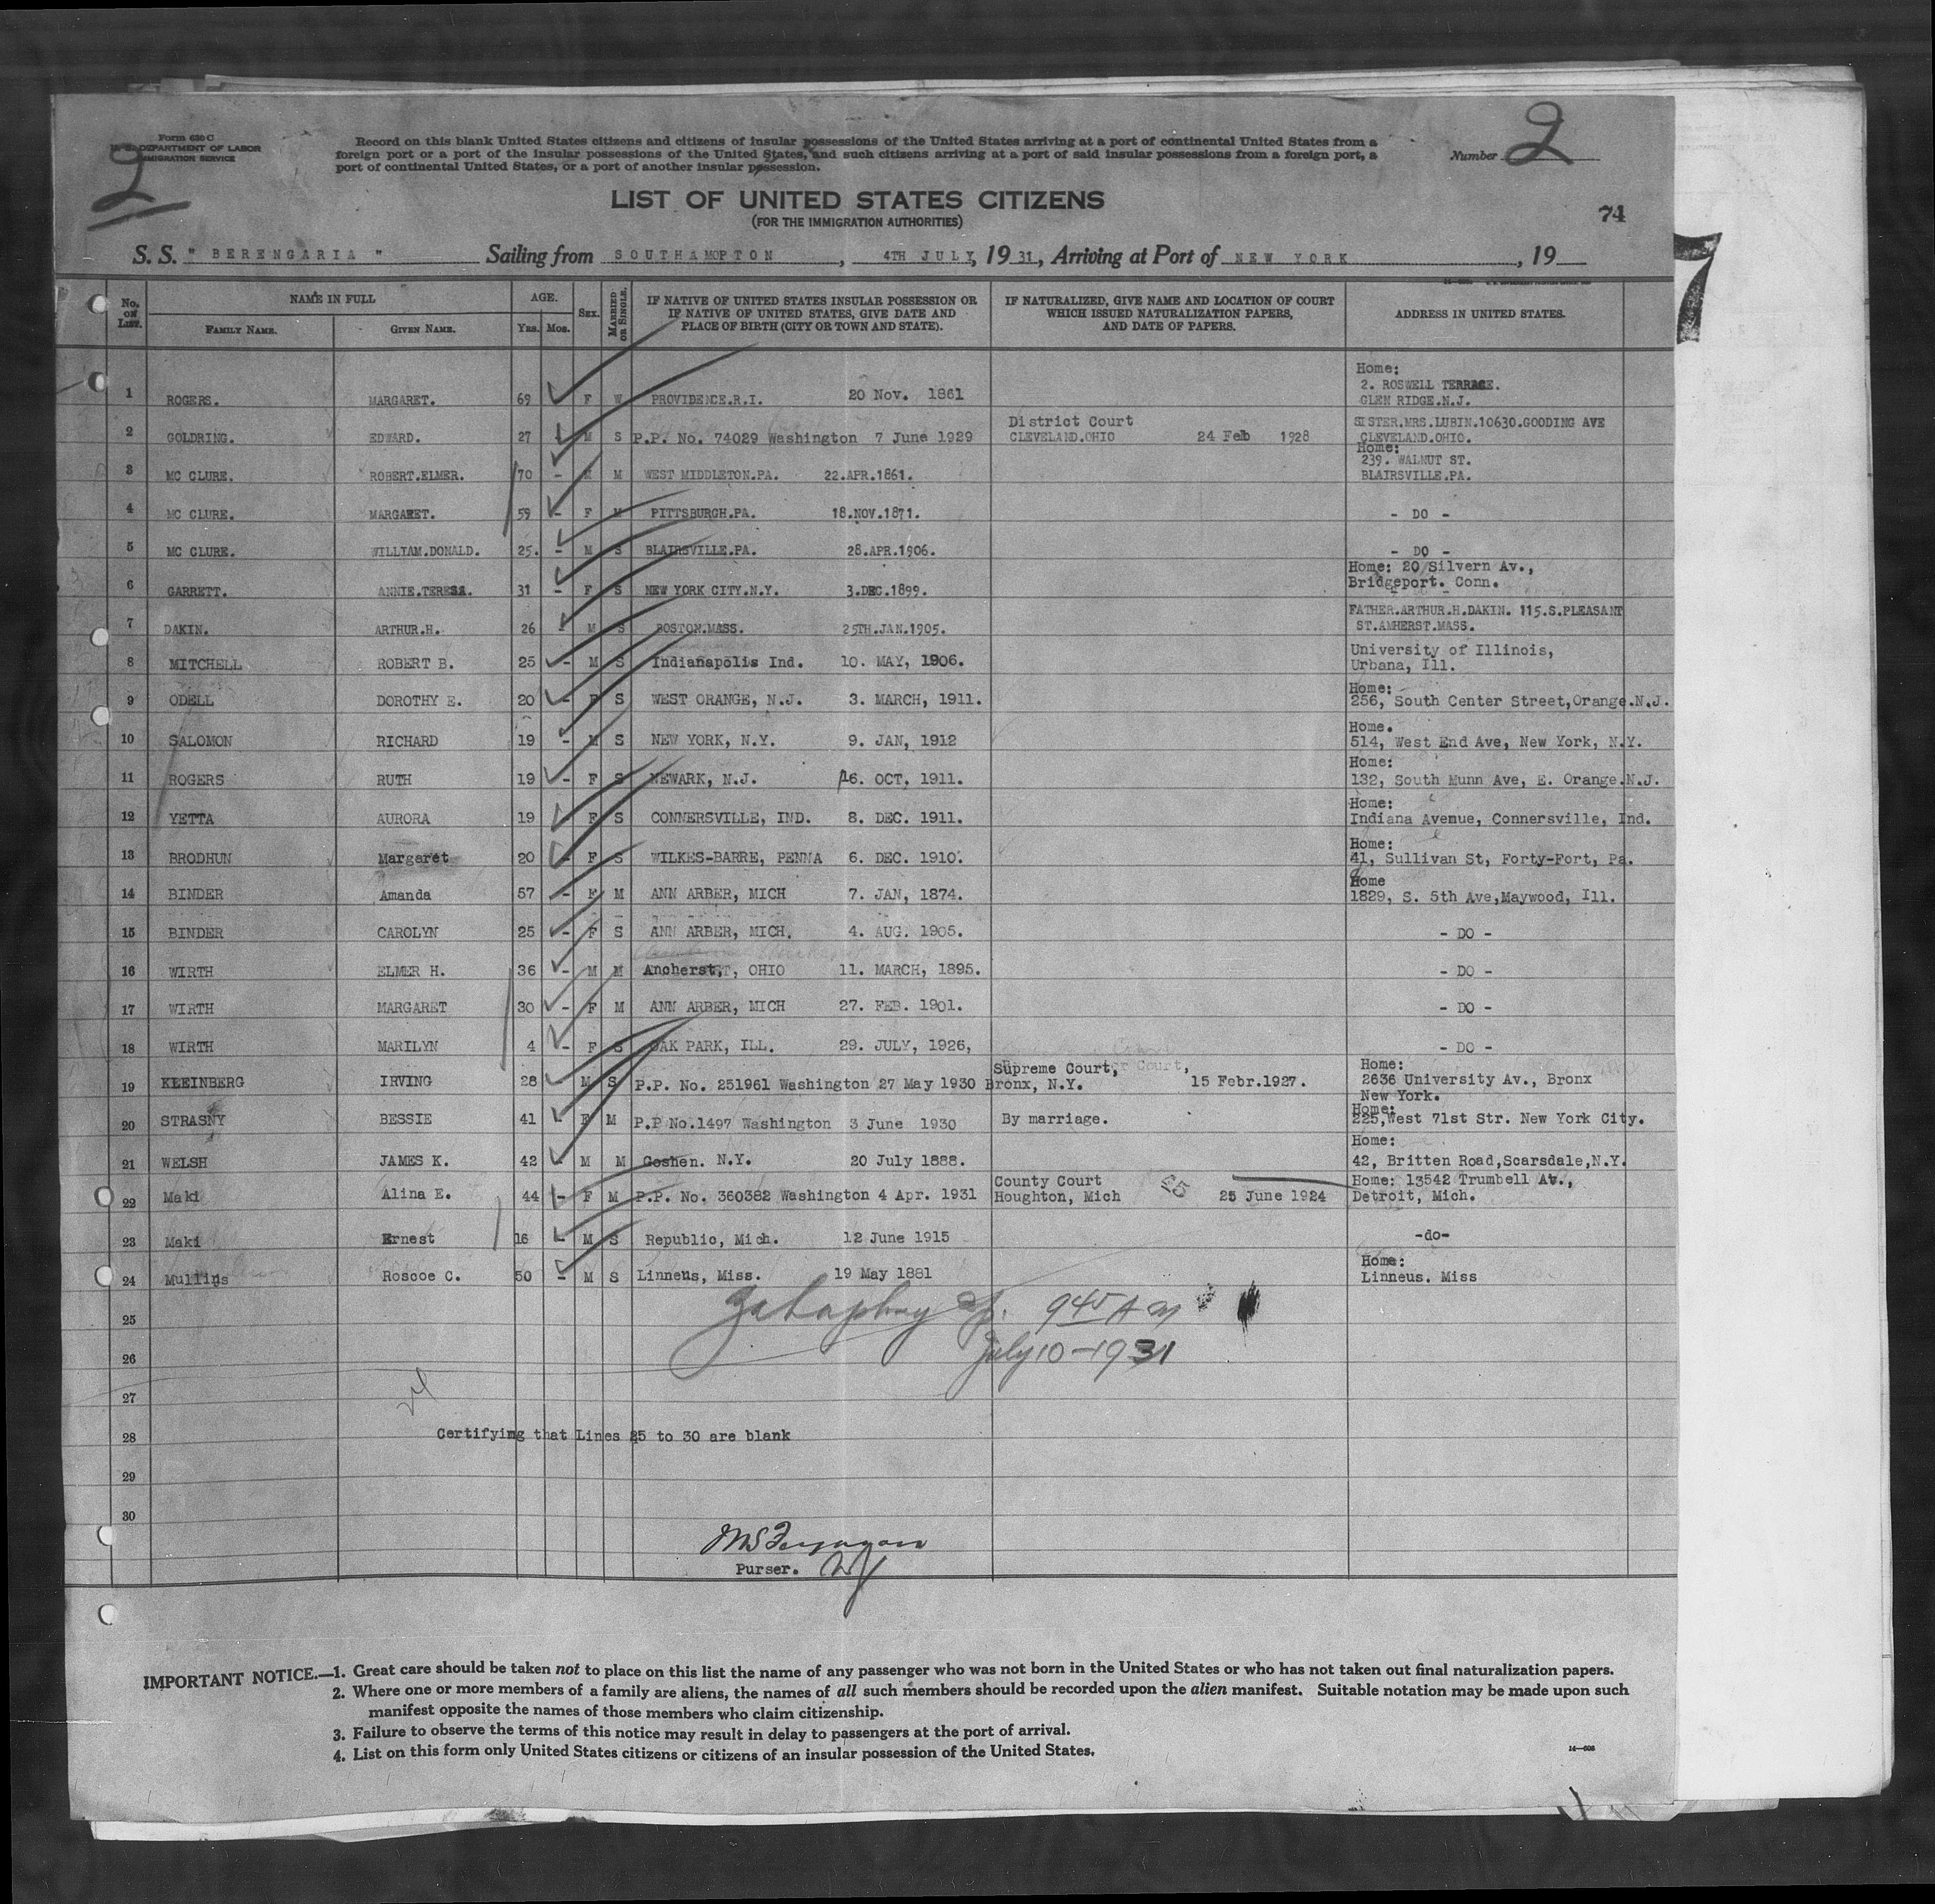 Form 630 C
DEPARTMENT OF LABOR
IMMIGRATION SERVICE
2
Record on this blank United States citizens and citizens of insular possessions of the United States arriving at a port of continental United States from a
foreign port or a port of the insular possessions of the United States, and such citizens arriving at a port of said insular possessions from a foreign port, a
port of continental United States, or a port of another insular possession.
Number 2
LIST OF UNITED STATES CITIZENS
(FOR THE IMMIGRATION AUTHORITIES)
74
7
S. S. " BERENGARIA " Sailing from SOUTHAMPTON, 4TH JULY, 1931, Arriving at Port of NEW YORK, 19
No. on List. NAME IN FULL FAMILY NAME. GIVEN NAME. AGE. Yrs. Mos. Sex. MARRIED OR SINGLE. IF NATIVE OF UNITED STATES INSULAR POSSESSION OR IF NATIVE OF UNITED STATES, GIVE DATE AND PLACE OF BIRTH (CITY OR TOWN AND STATE). IF NATURALIZED, GIVE NAME AND LOCATION OF COURT WHICH ISSUED NATURALIZATION PAPERS, AND DATE OF PAPERS. ADDRESS IN UNITED STATES.
1 ROGERS. MARGARET. 69 F W PROVIDENCE.R.I. 20 Nov. 1861 Home: 2. ROSWELL TERRACE. GLEN RIDGE.N.J.
2 GOLDRING. EDWARD. 27 - M S P.P. No. 74029 Washington 7 June 1929 District Court CLEVELAND.OHIO 24 Feb 1928 SISTER.MRS.LUBIN.10630.GOODING AVE CLEVELAND.OHIO.
3 MC CLURE. ROBERT.ELMER. 70 - M M WEST MIDDLETON.PA. 22.APR.1861. Home: 239. WALNUT ST. BLAIRSVILLE.PA.
4 MC CLURE. MARGARET. 59 - F M PITTSBURGH.PA. 18.NOV.1871. - DO -
5 MC CLURE. WILLIAM.DONALD. 25. - M S BLAIRSVILLE.PA. 28.APR.1906. - DO -
6 GARRETT. ANNIE.TERESA. 31 - F S NEW YORK CITY.N.Y. 3.DEC.1899. Home: 20 Silvern Av., Bridgeport. Conn.
7 DAKIN. ARTHUR.H. 26 - M S BOSTON.MASS. 25TH.JAN.1905. FATHER.ARTHUR.H.DAKIN. 115.S.PLEASANT ST.AMHERST.MASS.
8 MITCHELL ROBERT B. 25 - M S Indianapolis Ind. 10. MAY, 1906. University of Illinois, Urbana, Ill.
9 ODELL DOROTHY E. 20 - F S WEST ORANGE, N.J. 3. MARCH, 1911. Home: 256, South Center Street,Orange.N.J.
10 SALOMON RICHARD 19 - M S NEW YORK, N.Y. 9. JAN, 1912 Home. 514, West End Ave, New York, N.Y.
11 ROGERS RUTH 19 - F S NEWARK, N.J. 16. OCT, 1911. Home: 132, South Munn Ave, E. Orange.N.J.
12 YETTA AURORA 19 - F S CONNERSVILLE, IND. 8. DEC. 1911. Home: Indiana Avenue, Connersville, Ind.
13 BRODHUN Margaret 20 - F S WILKES-BARRE, PENNA 6. DEC. 1910. Home: 41, Sullivan St, Forty-Fort, Pa.
14 BINDER Amanda 57 - F M ANN ARBER, MICH 7. JAN, 1874. Home 1829, S. 5th Ave,Maywood, Ill.
15 BINDER CAROLYN 25 - F S ANN ARBER, MICH. 4. AUG. 1905. - DO -
16 WIRTH ELMER H. 36 - M M Amherst, OHIO 11. MARCH, 1895. - DO -
17 WIRTH MARGARET 30 - F M ANN ARBER, MICH 27. FEB. 1901. - DO -
18 WIRTH MARILYN 4 - F S OAK PARK, ILL. 29. JULY, 1926, - DO -
19 KLEINBERG IRVING 28 - M S P.P. No. 251961 Washington 27 May 1930 Supreme Court, Bronx, N.Y. 15 Febr.1927. Home: 2636 University Av., Bronx New York.
20 STRASNY BESSIE 41 - F M P.P No.1497 Washington 3 June 1930 By marriage. Home: 225,West 71st Str. New York City.
21 WELSH JAMES K. 42 - M M Goshen. N.Y. 20 July 1888. Home: 42, Britten Road,Scarsdale,N.Y.
22 Maki Alina E. 44 - F M P.P. No. 360382 Washington 4 Apr. 1931 County Court Houghton, Mich 25 25 June 1924 Home: 13542 Trumbell Av., Detroit, Mich.
23 Maki Ernest 16 - M S Republic, Mich. 12 June 1915 -do-
24 Mullins Roscoe C. 50 - M S Linneus, Miss. 19 May 1881 Home: Linneus. Miss
25
945 AM
26
July 10-1931
27
28 Certifying that Lines 25 to 30 are blank
29
30
Purser.
IMPORTANT NOTICE.—1. Great care should be taken not to place on this list the name of any passenger who was not born in the United States or who has not taken out final naturalization papers.
2. Where one or more members of a family are aliens, the names of all such members should be recorded upon the alien manifest. Suitable notation may be made upon such
manifest opposite the names of those members who claim citizenship.
3. Failure to observe the terms of this notice may result in delay to passengers at the port of arrival.
4. List on this form only United States citizens or citizens of an insular possession of the United States.